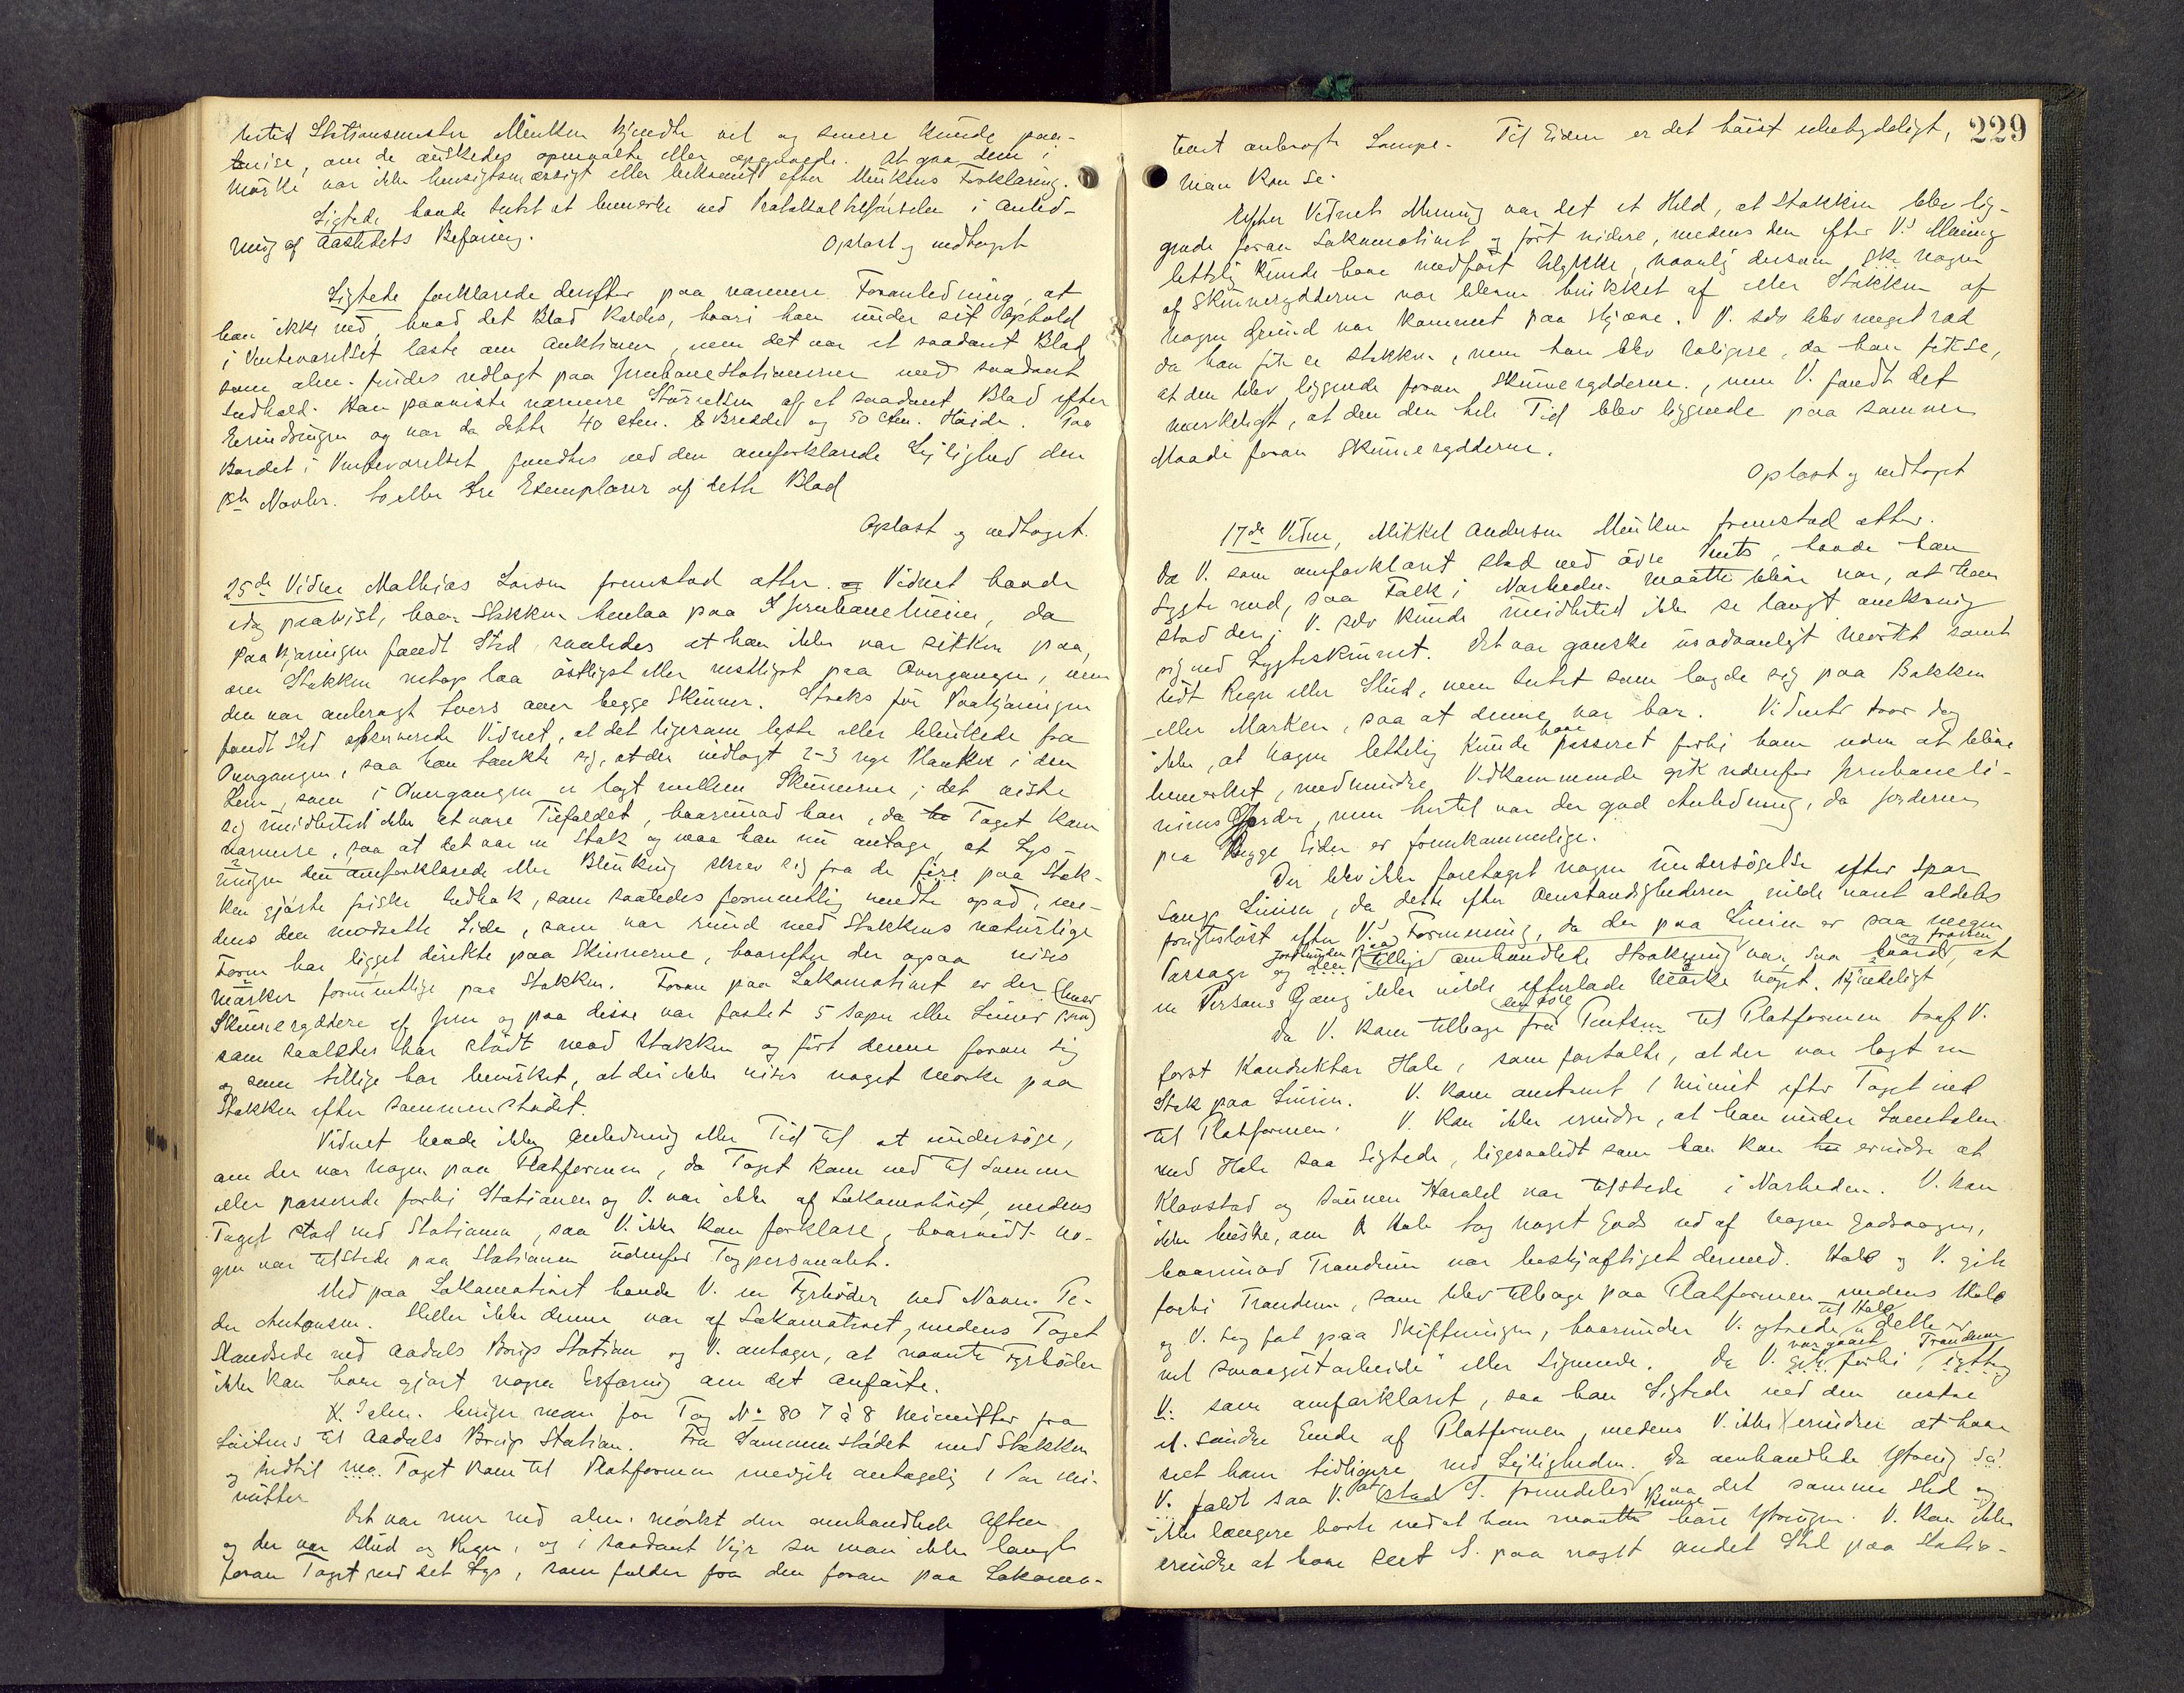 hvilket Stationsmester Munken kjendte vel og senere kunde paa-
vise, om de önskedes opmaalte eller opgaaede. At gaa dem i
Mörke var ikke hensigtsmæssigt eller bekvemt efter Munkens Forklaring.
Sigtede havde intet at bemerke ved Protokoltilförselen i Anled-
ning af Aastedets Befaring.
Oplæst og vedtaget
Sigtede forklarede derefter paa nærmere Foranledning, at
han ikke ved, hvad det Blad kaldes, hvori han under sit Ophold
i Venteværelset læste om Auktionen, men det var et saadant Blad
som alm. findes udlagt paa Jernbanestationerne med saadant
Indhold. Han paaviste nærmere Störrelsen af et saadant Blad efter
Erindringen og var da dette 40 ctm. i Bredde og 50 ctm. Höide. Paa
Bordet i Venteværelset fandtes ved den omforklarede Leilighed den
Novbr. to eller tre Exemplarer af dette Blad
Oplæst og vedtaget.
25de Vidne Mathias Larsen fremstod atter. Vidnet havde
idag paavist, hvor Stokken henlaa paa Jernbanelinien, da
Paakjöringen fandt Sted saaledes at han ikke var sikker paa,
om Stokken netop laa östligst eller vestligst paa Overgangen, men
den var anbragt tvers over begge Skinner. Straks för Paakjöringen
fandt Sted observerede Vidnet, at det ligesom lyste eller blinkede fra
Overgangen, saa han tænkte sig, at der var indlagt 2-3 nye Planker i den
Lem, som i Overgangen er lagt mellem Skinnerne; det viste
sig imidlertid ikke at være Tilfældet, hvorimod han, da Toget kom
nærmere, saa at det var en Stok og maa han nu antage, at Lys-
ningen den omforklarede eller Blinking skrev sig fra de fire paa Stok-
ken gjorte friske Indhak, som saaledes formentlig vendte opad, me-
dens den modsatte Side, som var rund med Stokkens naturlige
Form har ligget direkte paa Skinnerne, hvorefter der ogsaa vises
Mærker formentlige paa Stokken. Foran paa Lokomotivet er der
Skinneryddere af Jern og paa disse var fæstet 5 Soper eller Limer
som saaledes har stödt mod Stokken og fört denne foran sig
og som tillige har bevirket, at der ikke vises noget Mærke paa
Stokken efter Sammenstödet.
Vidnet havde ikke Anledning eller Tid til at undersöge,
om der var nogen paa Platformen, da Toget kom ned til Samme
eller passerede forbi Stationen og V. var ikke af Lokomotivet, medens
Toget stod ved Stationen, saa V. ikke kan forklare, hvorvidt no-
gen var tilstede paa Stationen udenfor Togpersonalet.
Med paa Lokomotivet havde V. en Fyrböder ved Navn Pe-
der Antonsen. Heller ikke denne var af Lokomotivet, medens Toget
standsede ved Aadals Brug Station og V. antager, at nævnte Fyrböder
ikke kan have gjort nogen Erfaring om det Anförte.
I alm. bruger man for Tog No 80 7 à 8 Minutter fra
Löitens til Aadals Brug Station. Fra Sammenstödet med Stokken
og indtil Toget kom til Platformen medgik antagelig 1 Par Mi-
nutter
Det var mer end alm. mörkt den omhandlede Aften
og der var Slud og Regn, og i saadant Veir ser man ikke langt
foran Toget med det Lys, som falder fra den foran paa Lokomo-
229
tivet anbragte Lampe. Til Siden er det höist ubetydeligt,
man kan se.
Efter Vidnets Mening var det et Held, at Stokken blev lig-
gende foran Lokomotivet og fört videre, medens den efter V.s Mening
lettelig kunde have medfört Ulykke, navnlig dersom nogen
af Skinnerydderne var bleven brækket af eller Stokken af
nogen Grund var kommet paa Skjæve. V. selv blev meget ræd
da han fik se Stokken, men han blev roligere, da han fik se,
at den blev liggende foran Skinnerydderne, men V. fandt det
mærkeligt, at den den hele Tid blev liggende paa samme
Maade foran Skinnerydderne.
Oplæst og vedtaget
17de Vidne, Mikkel Andersen Munken fremstod atter.
Da V. som omforklaret stod ved övre Pents, havde han
Lygte med, saa Folk i Nærheden maatte blive var, at han
stod der; V. selv kunde imidlertid ikke se langt omkring
sig ved Lygteskinnet. Det var ganske usædvanligt mörkt samt
lidt Regn eller Slud, men intet som lagde sig paa Bakken
eller Marken, saa at denne var bar. Vidnet tror dog
ikke, at nogen lettelig kunde have passeret forbi ham uden at blive
bemerket, medmindre Vedkommende gik udenfor Jernbaneli-
niens Gjerder, men hertil var der god Anledning, da Jorderne
paa begge Sider er fremkommelige.
Der blev ikke foretaget nogen Undersögelse efter Spor
langs Linien, da dette efter Omstændighederne vilde været aldeles
frugteslöst efter V.s Formening, da der paa Linien er saa megen
Passage og den tillige omhandlede Strækning var saa haard og frossen, at
en Persons Gang ikke vilde efterlade Mærke noget kjendeligt
Da V. kom tilbage fra Pentsen til Platformen traf V.
först Konduktör Hole, som fortalte, at der var lagt en
Stok paa Linien. V. kom omtrent 1 Minut efter Toget ned
til Platformen. V. kan ikke erindre, at han under Samtalen
med Hole saa Sigtede, ligesaalidt som han kan erindre at
Klavstad og Sönnen Harald var tilstede i Nærheden. V. kan
ikke huske, om Hole tog noget Gods ud af nogen Godsvogn,
hvorimod Trandum var beskjæftiget dermed. Hole og V. gik
forbi Trandum, som blev tilbage paa Platformen medens Hole
og V. tog fat paa Skiftningen, hvorunder V. ytrede til Hole "dette er
vel Smaagutarbeide" eller Lignende. Da V. var gaaet forbi Trandum
V. som omforklaret, saa han Sigtede ved den vestre
el. söndre Ende af Platformen, medens V. ikke erindrer at have
seet ham tidligere ved Leiligheden. Da omhandlede Ytring
V. faldt saa V. at S. fremdeles paa det samme Sted og
ikke længere borte end at han kunde höre Ytringen. V. kan ikke
erindre at have seet S. paa noget andet Sted paa Statio-